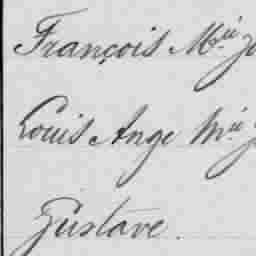 François Mie
Louis Ange Mie
Gustave.